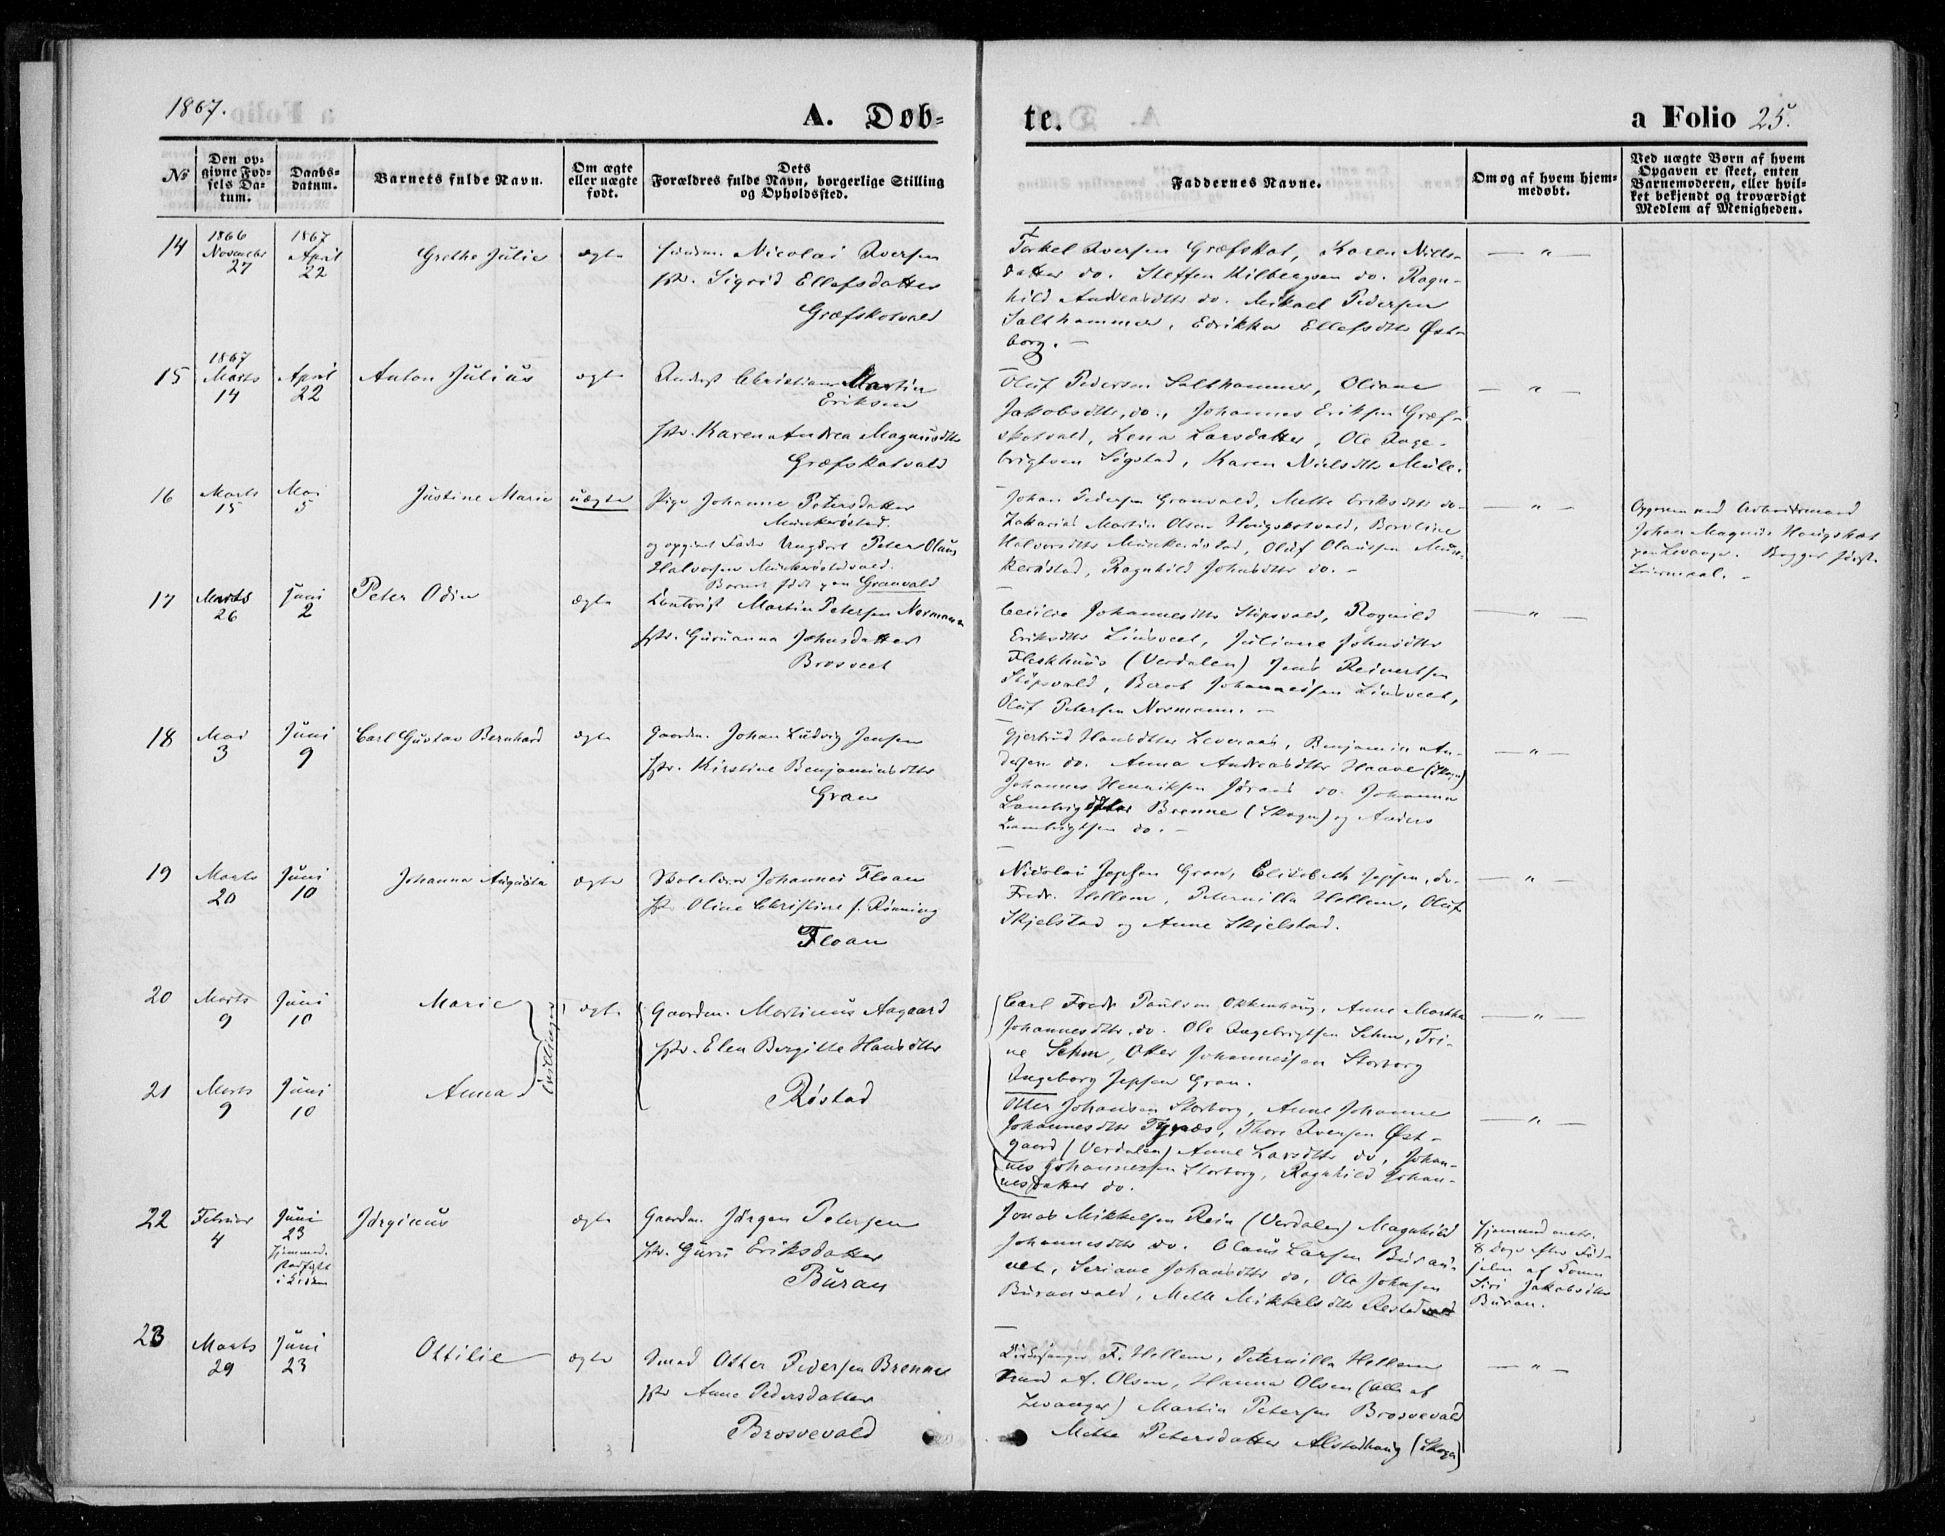 1867.
A. Døb-
te.
a Folio 25.
No
Den op-
givne Fød-
sels Da-
tum.
Daabs-
datum.
Barnets fulde Navn.
Om ægte
eller uægte
født.
Dets
Forældres fulde Navn, borgerlige Stilling
og Opholdssted.
Faddernes Navne.
Om og af hvem hjem-
medøbt.
Ved uægte Børn af hvem
Opgaven er skeet, enten
Barnemoderen, eller hvil-
ket bekjendt og troværdigt
Medlem af Menigheden.
14
1866
November
27
1867
April
22
Grethe Julie
ægte
Nicolai Iversen
Sigrid Ellefsdatter
Græfskotvald
Torkel Iversen Græfskot, Karen Niels-
datter do. Steffen Hilbergsen do. Ragn-
hild Andreasdtr do. Mikael Pedersen
Salthammer, Edrikka Ellefsdtr Øst-
borg. -
15
1867
Marts
14
April
22
Anton Julius
ægte
Christian Martin
Eriksen
Karen Andrea Magnusdtr
Græfskotvald
Oluf Pedersen Salthammer, Oliane
Jakobsdtr, do., Johannes Eriksen Græf-
skotvald, Lena Larsdatter, Ole Inge-
brigtsen Søgstad, Karen Nielsdtr Mule.
16
Marts
15
Mai
5
Justine Marie
uægte
Pige Johanne Petersdatter
Munkerøstad.
og opgivet Fader Ungdort Peter Olaus
Halvorsen Munkerøstadvald.
Barnet født paa Granvald
Johan Pedersen Granvald, Mette Eriksdtr do.
Zakarias Martin Olsen Haugskotvald, Beroline
Halvorsdtr Munkerøstad, Oluf Olaussen Mun-
kerøstad, Ragnhild Johnsdtr do. -
Opgaven ved Arbeidsmand
Johan Magnus Haugskot
paa Levanger. Begges første
Leiermaal. -
17
Marts
26
Juni
2
Peter Odin
ægte
Martin Petersen Normann
Guruanna Johnsdatter
Brosveet
Cecilie Johannesdtr Stopsvald, Ragnild
Eriksdtr Linsveet, Juliane Johnsdtr
Fleskhuus (Verdalen) Jens Reinertsen
Stopsvald, Bernt Johannessen Linsveet,
Oluf Petersen Normann. -
18
Mai
3
Juni
9
Carl Gustav Bernhard
ægte
Gaardm. Johan Ludvig Jensen
Kirstine Benjaminsdtr
Gran
Gjertrud Hansdtr Leveraas, Benjamin An-
dersen do. Anna Andreasdtr Haave (Skogn)
Johannes Henriksen do. Johanna
Lambrigtsdtr Brenne (Skogn) og Anders
Lambrigtsen do. -
19
Marts
20
Juni
10
Johanna Augusta
ægte
Skolelærer Johannes Floan
Oline Christine f. Rønning
Floan
Nicolai Jepsen Gran, Elisabeth Jepsen, do.
Fredr. Hollem, Peternilla Hollem, Oluf
Skjelstad og Anne Skjelstad.
20
Marts
9
Juni
10
Marie
Tvillinger
ægte
Gaardm. Martinus Aagaard
Elen Bergitte Hansdtr
Røstad
Carl Fredr Paulsen Okkenhaug, Anne Martha
Johannesdtr, do. Ole Ingebrigtsen Sehm, Tri-
ne Sehm, Otter Johannessen Storborg
Ingeborg Jepsen Gran.
21
Marts
9
Juni
10
Anna
Otter Johansen Storborg, Anne Johanne
Johannesdtr Tynæs, Thore Iversen Øst-
gaard (Verdalen) Anne Larsdtr do, Johan-
nes Johannessen Storborg, Ragnhild Johan-
nesdatter do.
22
Februar
4
Juni
23
Hjemmed.
stadfæst
i Kirken
Jørginus
ægte
Gaardm. Jørgen Petersen
Guru Eriksdatter
Buran
Jonas Mikkelsen Rein (Verdalen) Magnhild
Johannesdtr do. Olaus Larsen Buran-
vet, Seriane Johansdtr do, Ole Johnsen
Buranvald, Mette Mikkelsdtr Røstad
Hjemmed
8 Dage efter Fød-
selen af
Siri Jakobsdtr
Buran.
23
Marts
29
Juni
23
Ottilie
ægte
Smed Otter Pedersen Brenne
Anne Pedersdatter
Brosvevald
Kirkesanger F. Hollem, Peternilla Hollem
A. Olsen, Hanna Olsen (alle af
Levanger) Martin Petersen Brosvevald
Mette Petersdatter Alstadhaug (Skogn)